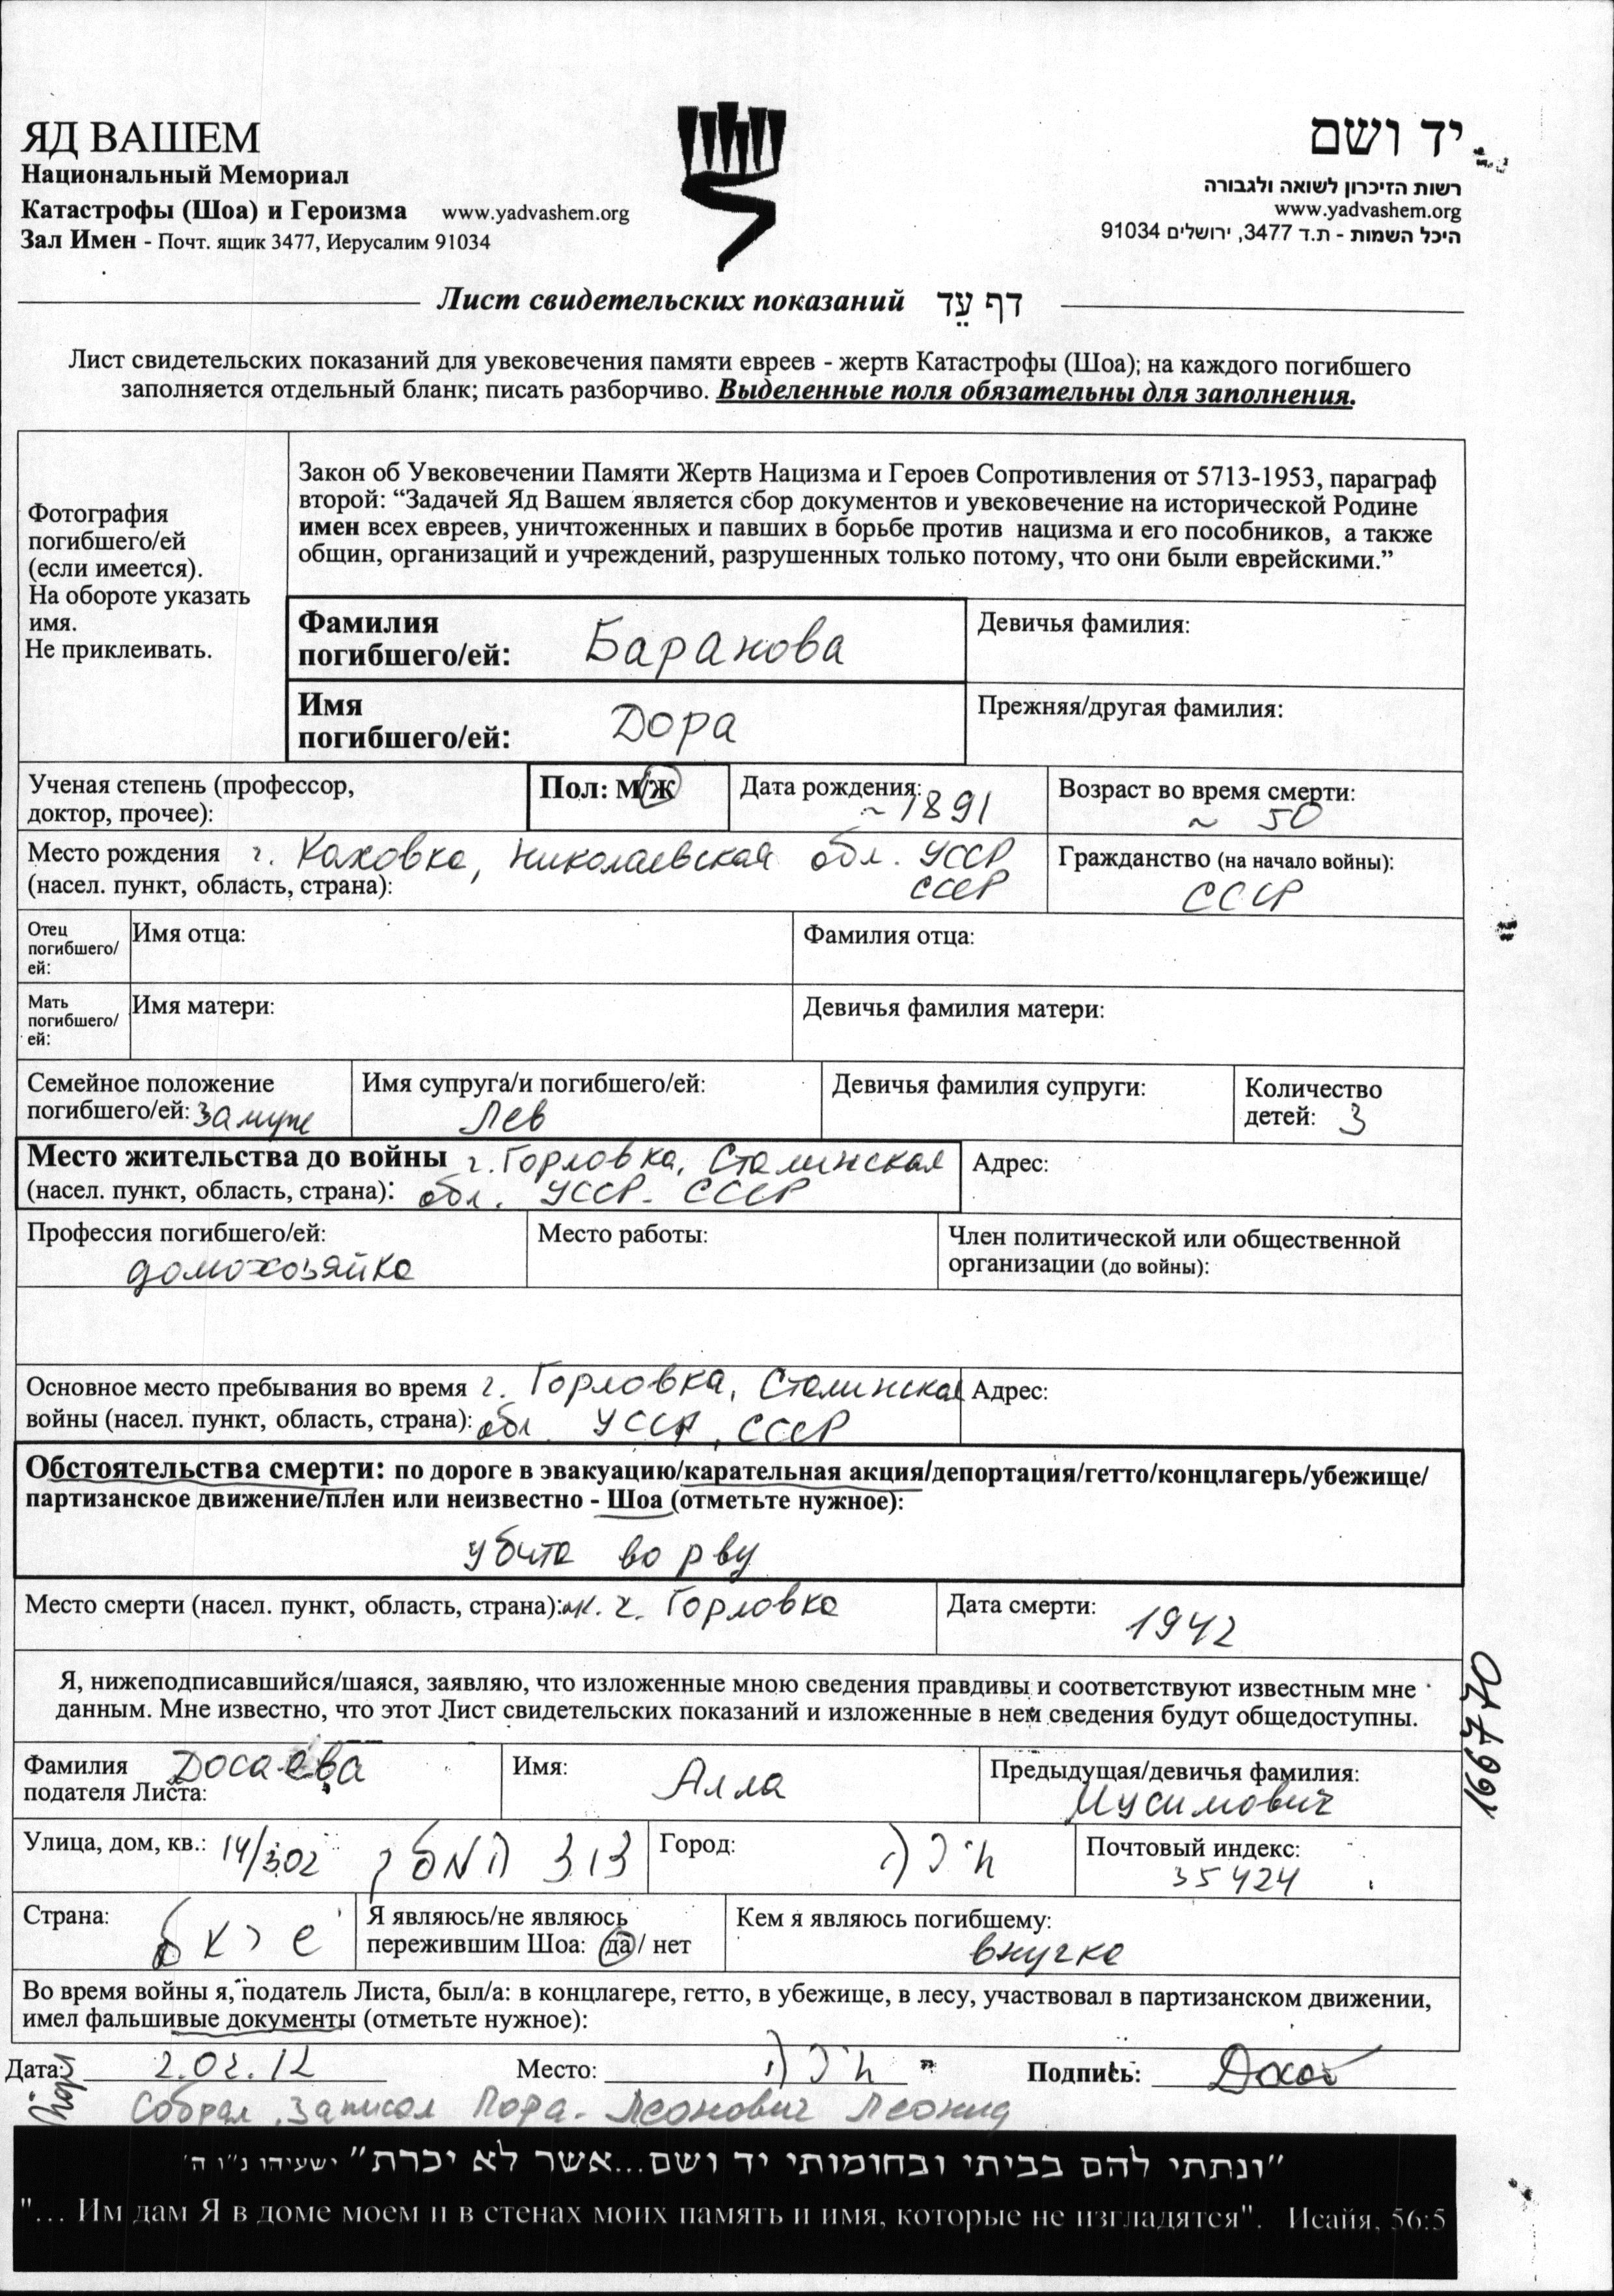 ЯД ВАШЕМ
Национальный Мемориал
Катастрофы (Шоа) и Героизма www.yadvashem.org
Зал Имен - Почт. ящик 3477, Иерусалим 91034
יד ושם
רשות הזיכרון לשואה ולגבורה
www.yadvashem.org
היכל השמות - ת.ד 3477, ירושלים 91034
Лист свидетельских показаний דף עֵד
Лист свидетельских показаний для увековечения памяти евреев - жертв Катастрофы (Шоа); на каждого погибшего
заполняется отдельный бланк; писать разборчиво. Выделенные поля обязательны для заполнения.
Фотография
погибшего/ей
(если имеется).
На обороте указать
имя.
Не приклеивать.
Закон об Увековечении Памяти Жертв Нацизма и Героев Сопротивления от 5713-1953, параграф
второй: “Задачей Яд Вашем является сбор документов и увековечение на исторической Родине
имен всех евреев, уничтоженных и павших в борьбе против нацизма и его пособников, а также
общин, организаций и учреждений, разрушенных только потому, что они были еврейскими.”
Фамилия
погибшего/ей: Баранова
Девичья фамилия:
Имя
погибшего/ей: Дора
Прежняя/другая фамилия:
Ученая степень (профессор,
доктор, прочее):
Пол: М/Ж
Дата рождения:
~ 1891
Возраст во время смерти:
~ 50
Место рождения г. Каховка, Николаевская обл. УССР
(насел. пункт, область, страна): СССР
Гражданство (на начало войны):
СССР
Отец
погибшего/
ей:
Имя отца:
Фамилия отца:
Мать
погибшего/
ей:
Имя матери:
Девичья фамилия матери:
Семейное положение
погибшего/ей: Замуж
Имя супруга/и погибшего/ей:
Лев
Девичья фамилия супруги:
Количество
детей: 3
Место жительства до войны г. Горловка, Сталинская
(насел. пункт, область, страна): обл. УССР - СССР
Адрес:
Профессия погибшего/ей:
домохозяйка
Место работы:
Член политической или общественной
организации (до войны):
Основное место пребывания во время г. Горловка, Сталинская
войны (насел. пункт, область, страна): обл. УССР, СССР
Адрес:
Обстоятельства смерти: по дороге в эвакуацию/карательная акция/депортация/гетто/концлагерь/убежище/
партизанское движение/плен или неизвестно - Шоа (отметьте нужное):
убита во рву
Место смерти (насел. пункт, область, страна): г. Горловка
Дата смерти:
1942
Я, нижеподписавшийся/шаяся, заявляю, что изложенные мною сведения правдивы и соответствуют известным мне
данным. Мне известно, что этот Лист свидетельских показаний и изложенные в нем сведения будут общедоступны.
Фамилия Досаева
податели Листа:
Имя: Алла
Предыдущая/девичья фамилия:
Мусимович
Улица, дом, кв.: 14/302
Город: חיפה
Почтовый индекс:
35424
Страна: ישראל
Я являюсь/не являюсь
пережившим Шоа: да / нет
Кем я являюсь погибшему:
внучка
Во время войны я, податель Листа, был/а: в концлагере, гетто, в убежище, в лесу, участвовал в партизанском движении,
имел фальшивые документы (отметьте нужное):
Дата: 2.02.12 Место: חיפה Подпись:
Собрал, записал Леонович Леонид
166740
"ונתתי להם בביתי ובחומותי יד ושם...אשר לא יכרת" ישעיהו נ"ו ה'
"... Им дам Я в доме моем и в стенах моих память и имя, которые не изгладятся". Исайя, 56:5